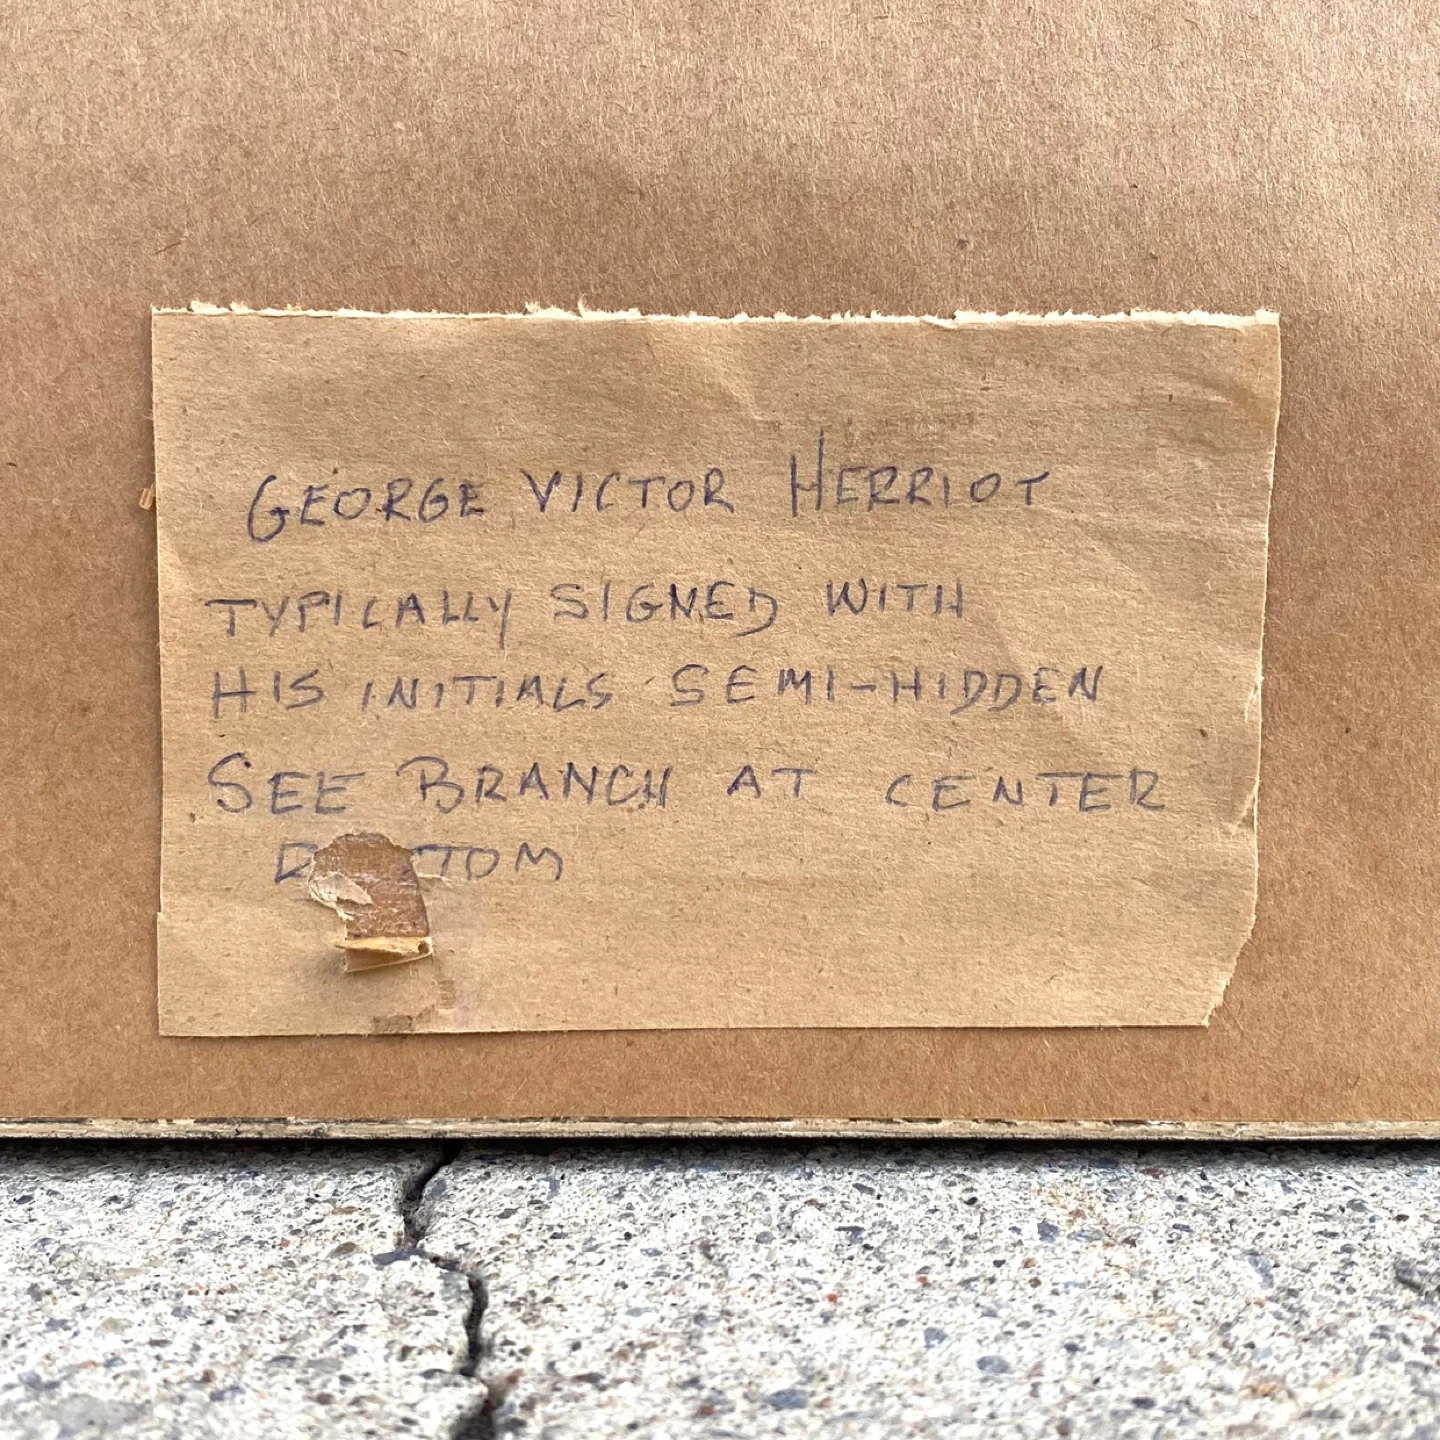 GEORGE VICTOR HERRIOT
TYPICALLY SIGNED WITH
HIS INITIALS SEMI-HIDDEN
SEE BRANCH AT CENTER